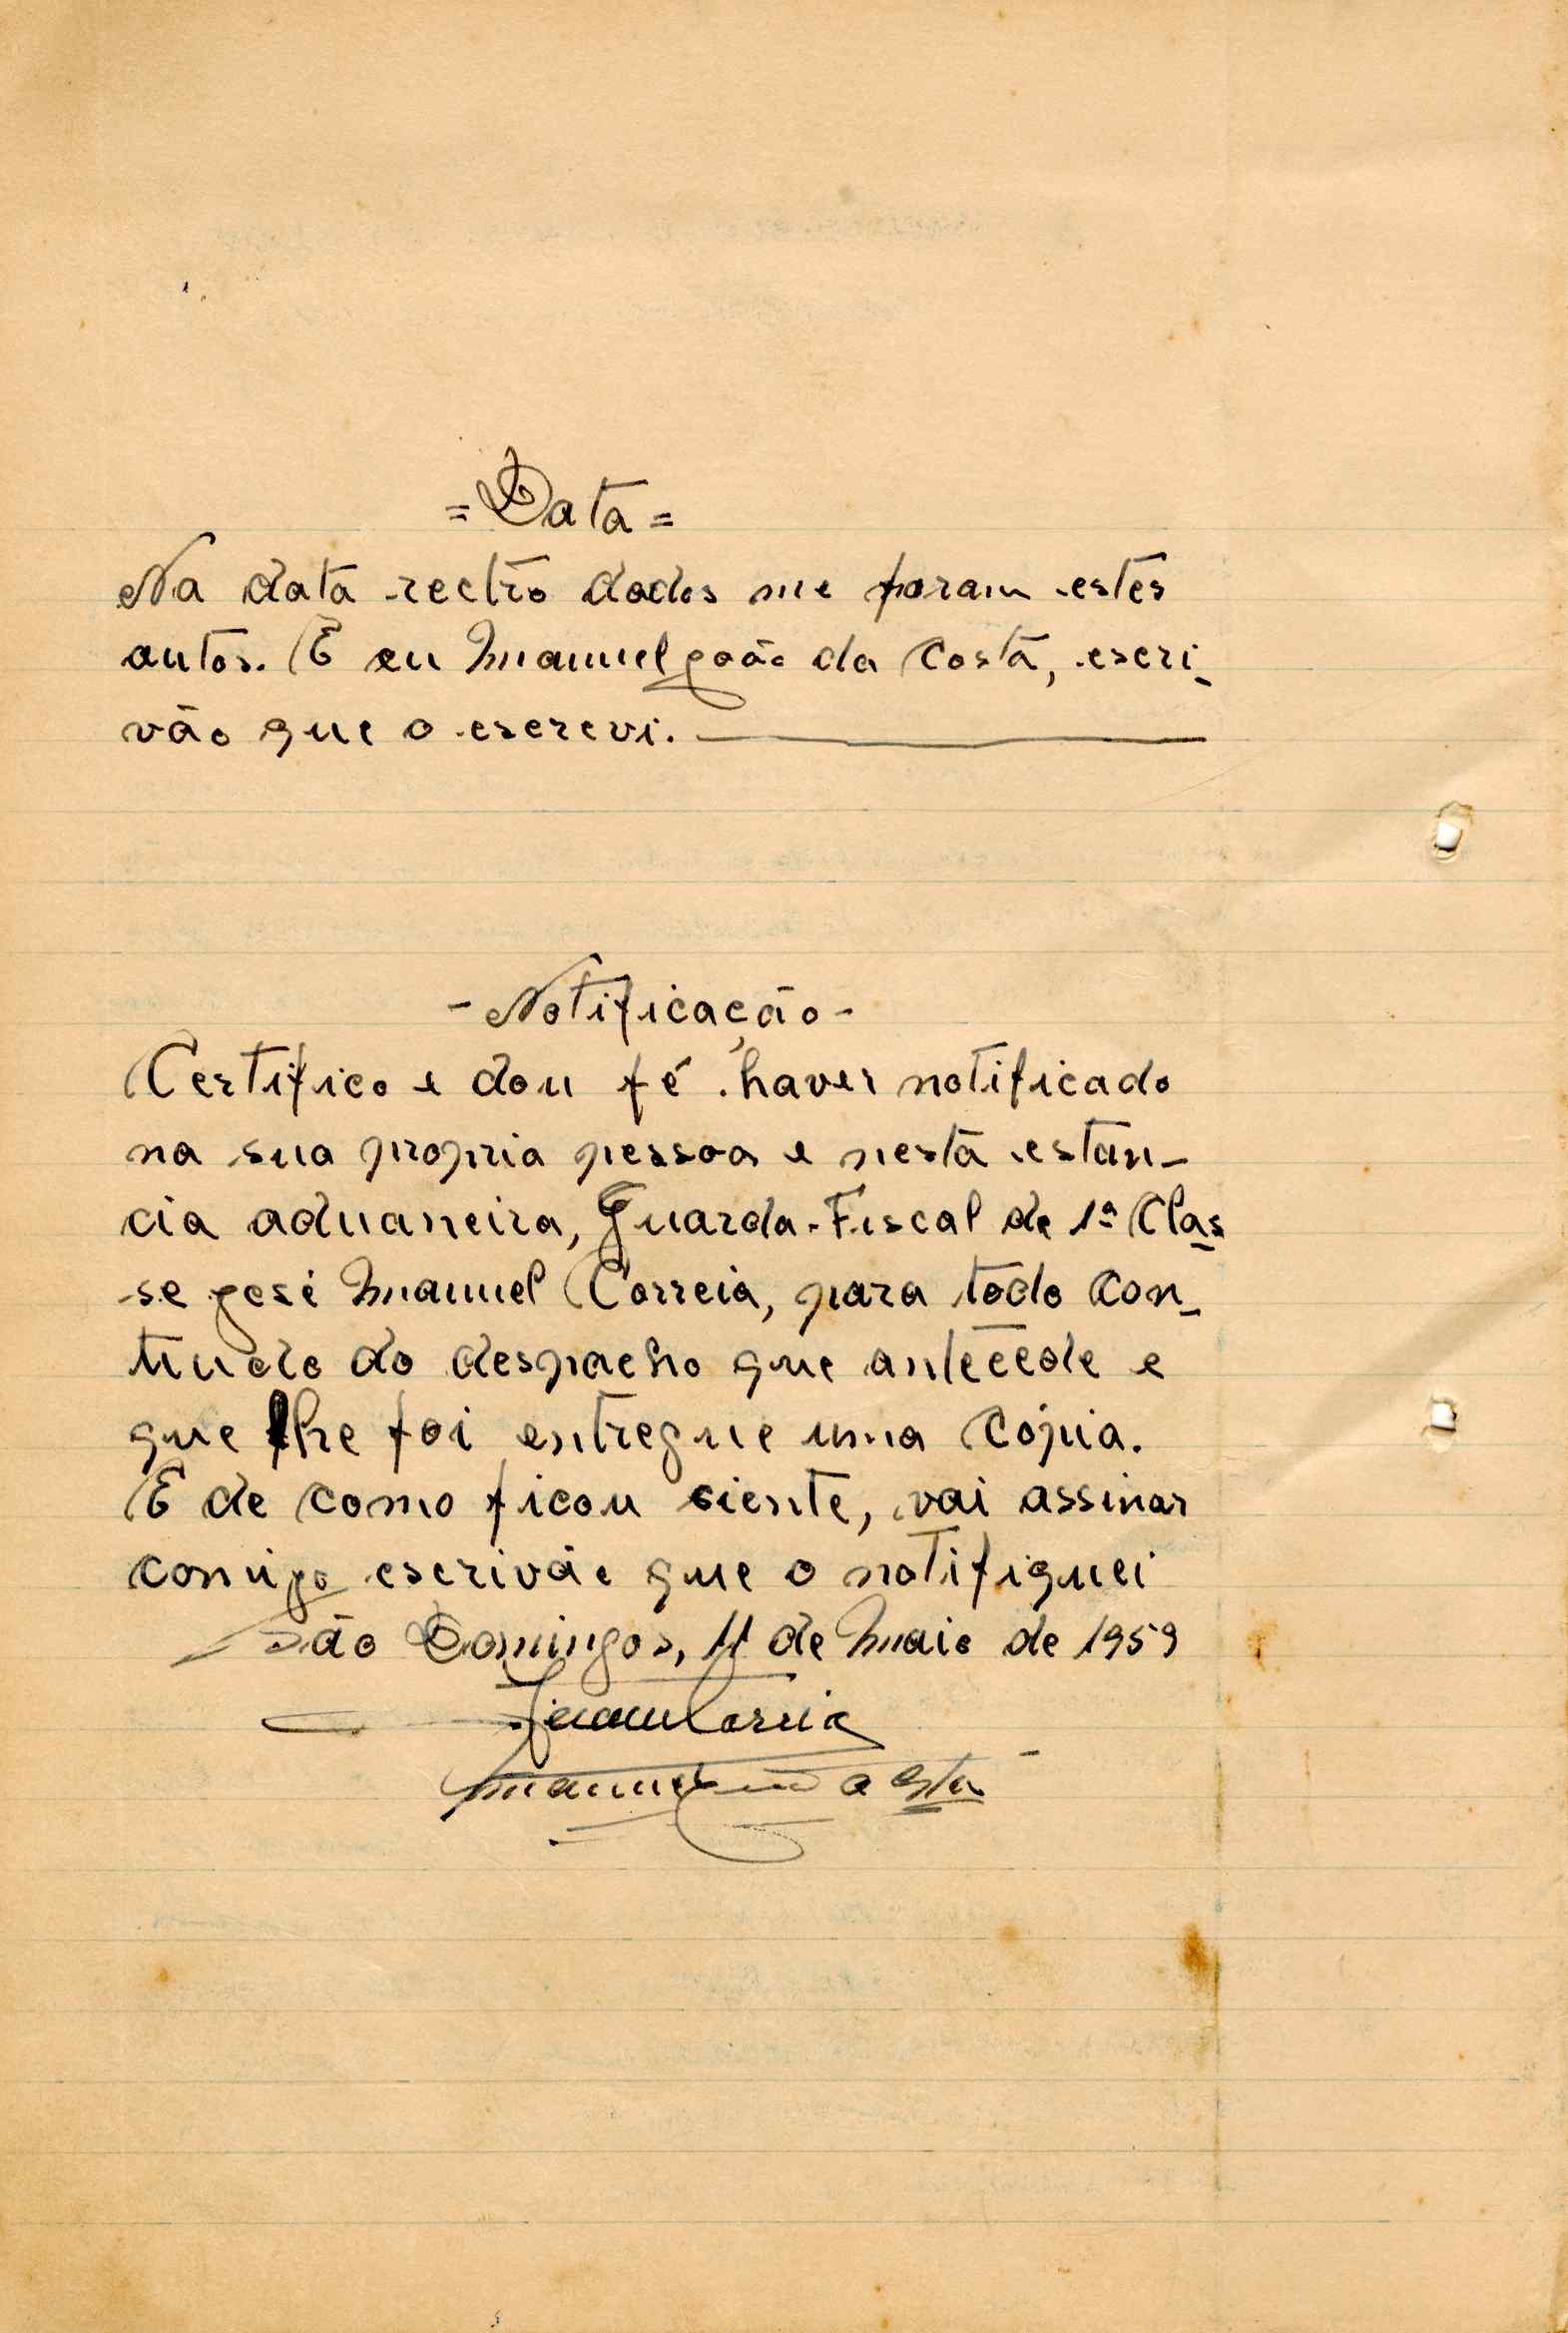 =Data=
Na data rectro dados me foram estes
autos. E eu Manuel João da Costa, escri-
vão que o escrevi.
-Notificação-
Certifico e dou fé haver notificado
na sua propria pessoa e nesta estân-
cia aduaneira, Guarda-Fiscal de 1ª Clas-
se José Manuel Correia, para todo con-
tiudo do despacho que antecede e
que lhe foi entregue uma cópia.
E de como ficou siente, vai assinar
comigo escrivão que o notifiquei
São Domingos, 11 de Maio de 1959
Correia
Manuel Costa